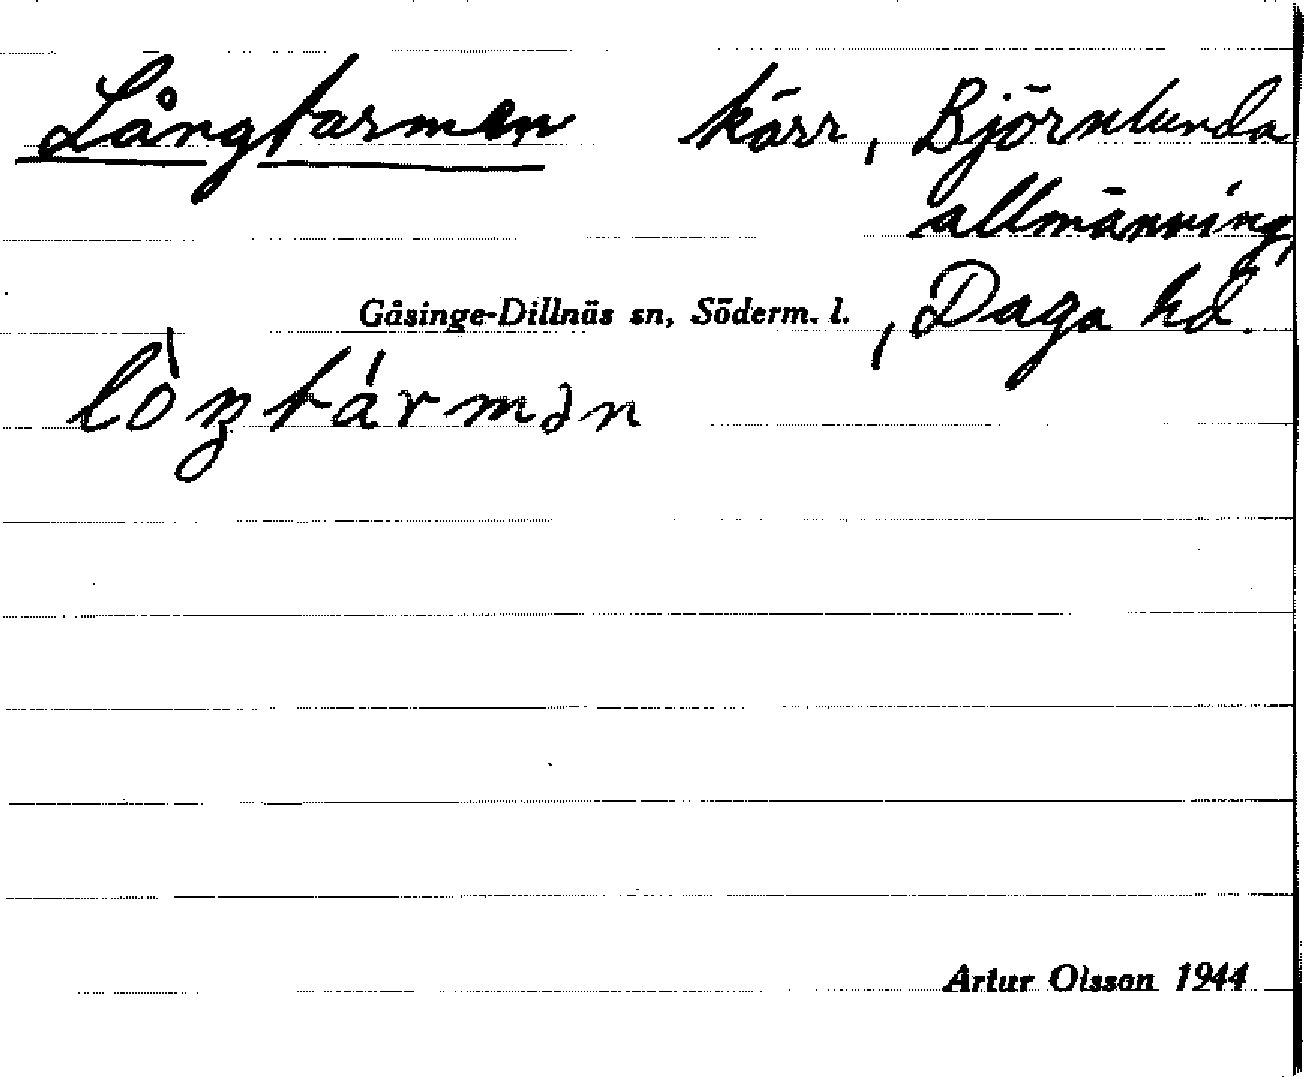 Långtarmen kärr, Björnlunda
allmänning,
Gåsinge-Dillnäs sn, Söderm. l. , Daga hd.
lò̀ŋtármən
Artur Olsson 1944